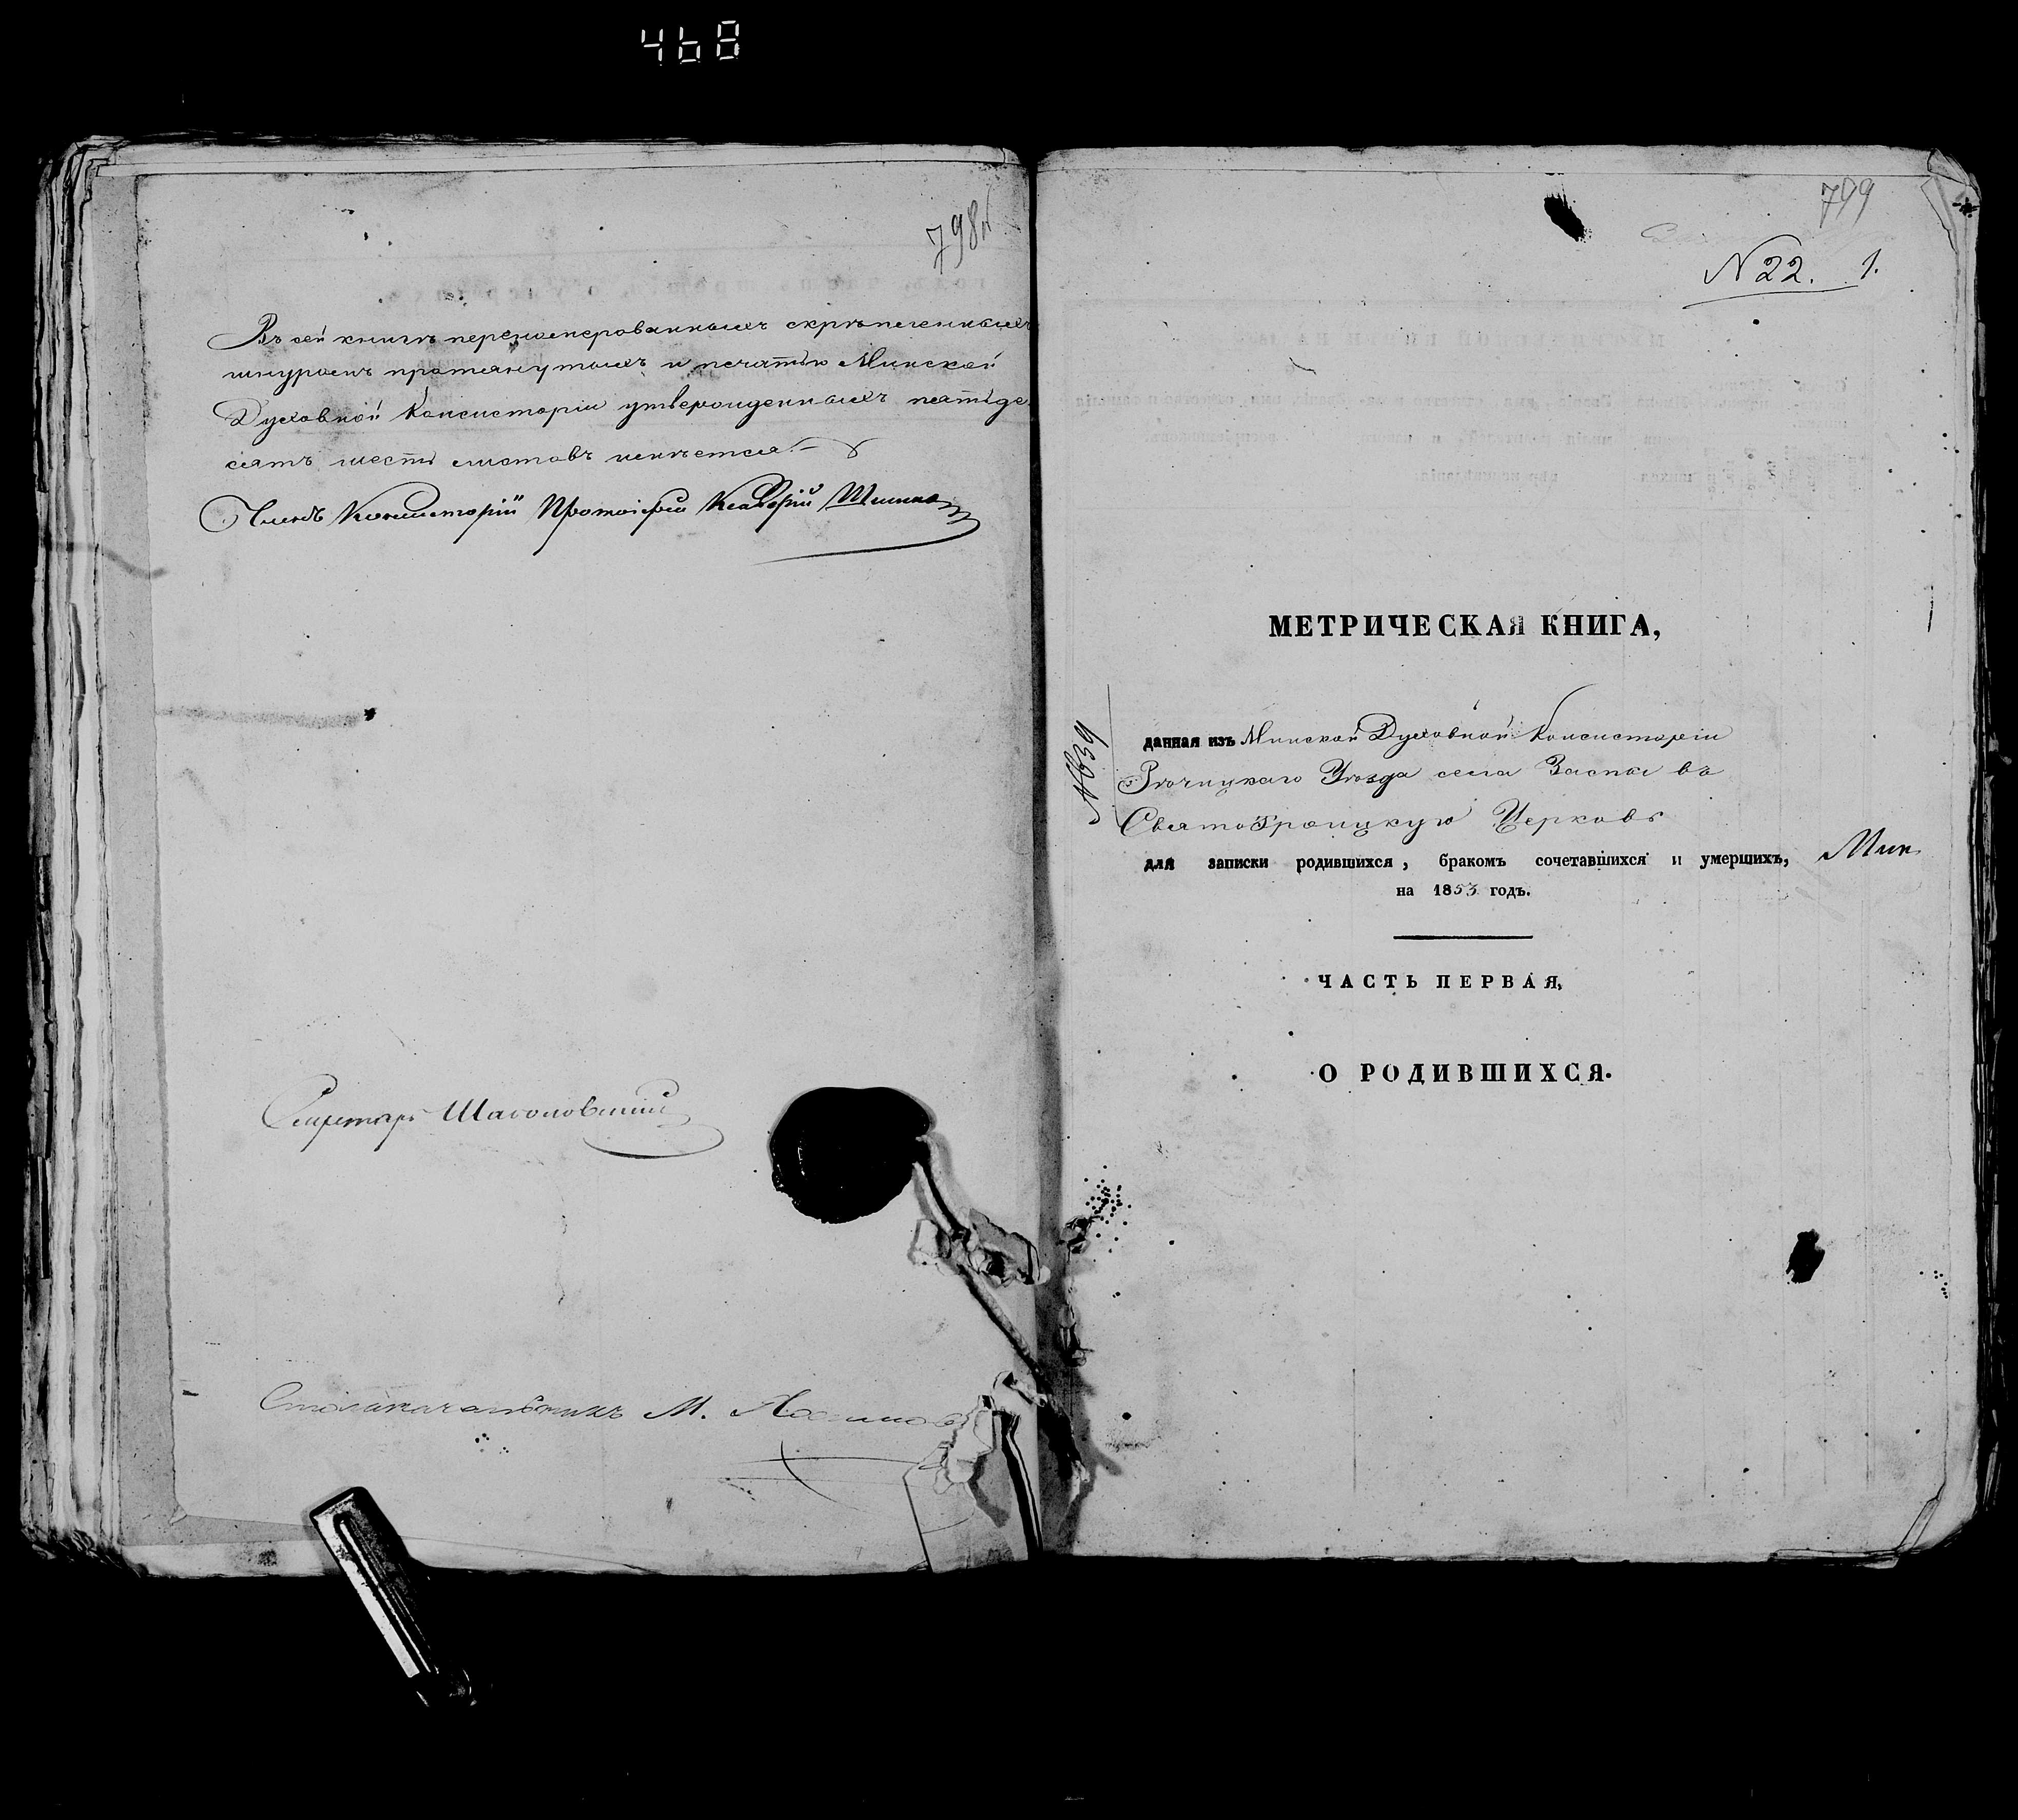 468
798
Въ сей книгѣ перенумерованныхъ скрѣпленныхъ
шнуромъ протянутыхъ и печатью Минской
Духовной Консисторіи утвержденныхъ пятьде
сятъ шесть листовъ имѣется.
Членъ Консисторіи Протоіерей
Секретарь
Столоначальникъ М.
799
N 22. 1.
МЕТРИЧЕСКАЯ КНИГА,
данная изъ Минской Духовной Консисторіи
Рѣчицкаго Уѣзда села Заспы въ
СвятоТроицкую Церковь
для записки родившихся, бракомъ сочетавшихся и умершихъ, Мин
на 1853 годъ.
ЧАСТЬ ПЕРВАЯ,
О РОДИВШИХСЯ.